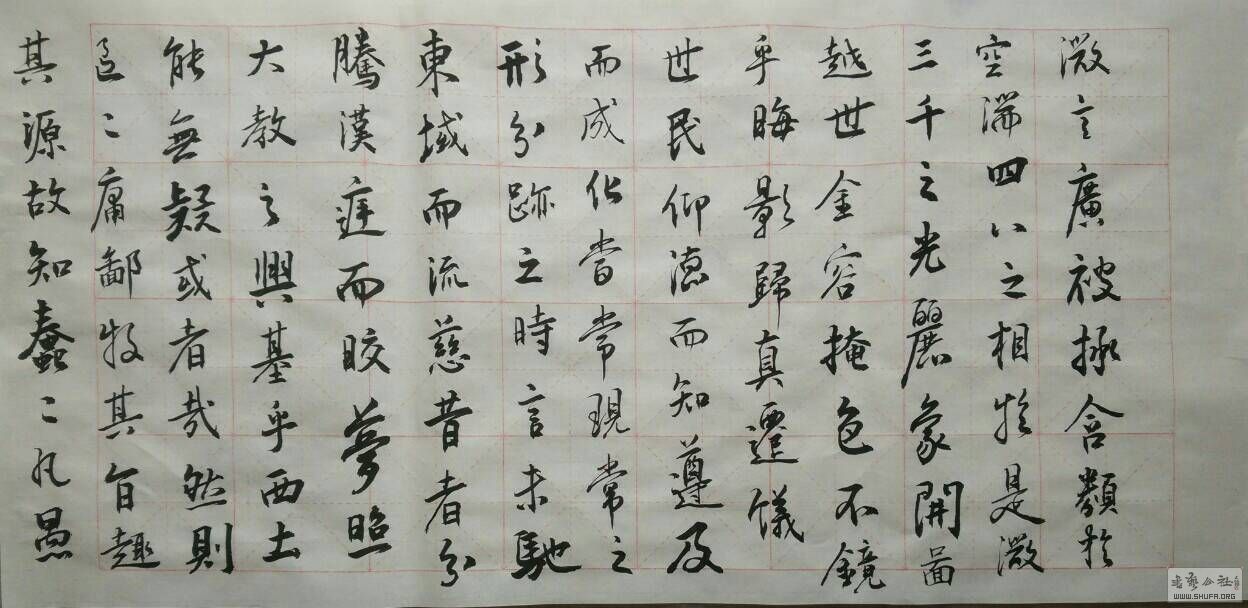 其源故知蠢々凡愚
區々庸鄙投其旨趣
能無疑或者哉然則
大教之興基乎西土
騰漢庭而皎夢照
東域而流慈昔者分
形分跡之時言未馳
而成化當常現常之
世民仰德而知遵及
乎晦影歸真遷儀
越世金容掩色不鏡
三千之光麗象開啚
空端四八之相於是微
微言廣被拯含類於
WWW.SHUFA.ORG